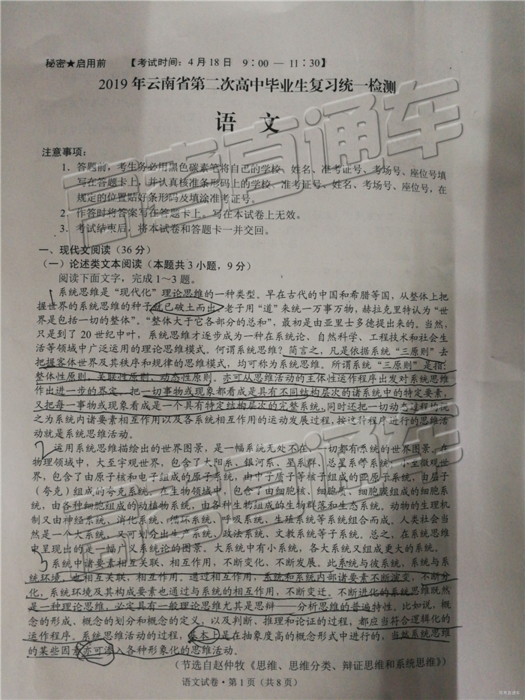 秘密★启用前 【考试时间：4月18日 9：00—11：30】
2019年云南省第二次高中毕业生复习统一检测
语 文
注意事项：
1．答题前，考生务必用黑色碳素笔将自己的学校、姓名、准考证号、考场号、座位号填
写在答题卡上，并认真核准条形码上的学校、准考证号、姓名、考场号、座位号，在
规定的位置贴好条形码及填涂准考证号。
2．作答时将答案写在答题卡上。写在本试卷上无效。
3．考试结束后，将本试卷和答题卡一并交回。
一、现代文阅读（36分）
（一）论述类文本阅读（本题共3小题，9分）
阅读下面文字，完成1～3题。
系统思维是“现代化”理论思维的一种类型。早在古代的中国和希腊等国，从整体上把
握世界的系统思维的种子就已破土而出。老子用“道”来统一万事万物，赫拉克里特认为“世
界是包括一切的整体”、“整体大于它各部分的总和”，最初是由亚里士多德提出来的。当然，
只是到了20世纪中叶，系统思维才逐步成为一种在系统论、自然科学、工程技术和社会生
活等领域中广泛运用的理论思维模式。何谓系统思维？简言之，凡是依据系统“三原则”去
把握客体世界及其秩序和规律的思维模式，均可称为系统思维。所谓系统“三原则”是指：
整体性原则、关联性原则、动态性原则。亦可从思维活动的主体性运作程序出发对系统思维
作出进一步的界定，把一切事物或现象都看成是具有不同结构层次的诸系统中的特定要素，
又把每一事物或现象看成是一个具有特定结构层次的完整系统，同时还把一切动态过程视
之为系统内诸要素相互作用以及各系统相互作用的运动发展过程，按这种程序进行的思维活
动就是系统思维活动。
运用系统思维描绘出的世界图景，是一幅系统无处不在、一切都有系统的世界图景。在
物理领域中，大至宇观世界，包含了太阳系、银河系、星系群、总星系等系统；小至微观世
界，包含了由原子核和电子组成的原子系统、由中子质子等核子组成的原子核系统、由层子
（夸克）组成的夸克系统。在生物领域中，包含了由细胞核、细胞质、细胞膜组成的细胞系
统、由各种细胞组成的动植物系统、由各种生物组成的生物群落和生态系统，动物的生理机
制又由神经系统、消化系统、循环系统、呼吸系统、生殖系统等系统组合而成。人类社会当
然是一个大系统，又可划分出生产系统、政法系统、文教系统等子系统。总之，在系统思维
中呈现出的是一幅广义系统论的图景。大系统中有小系统，各大系统又组成更大的系统。
系统中诸要素相互关联、相互作用，不断变化、不断发展。此系统与彼系统，系统与系
统环境，也相互关联、相互作用。通过相互作用，系统和系统内部诸要素不断演变，不断分
化，系统环境及其构成要素也通过与系统的相互作用，不断变迁、不断进化的系统思维既然
是一种理论思维，必定具有一般理论思维尤其是思辩——分析思维的普遍特性。比如说，概
念的形成，概念的划分和概念的定义，以及判断、推理和论证的过程，都应当符合逻辑化的
运作程序。系统思维活动的过程，基本上是在抽象度高的概念形式中进行的，当然系统思维
的某些因素亦可渗入各种形象化的思维活动。
（节选自赵仲牧《思维、思维分类、辩证思维和系统思维》）
语文试卷·第1页（共8页）